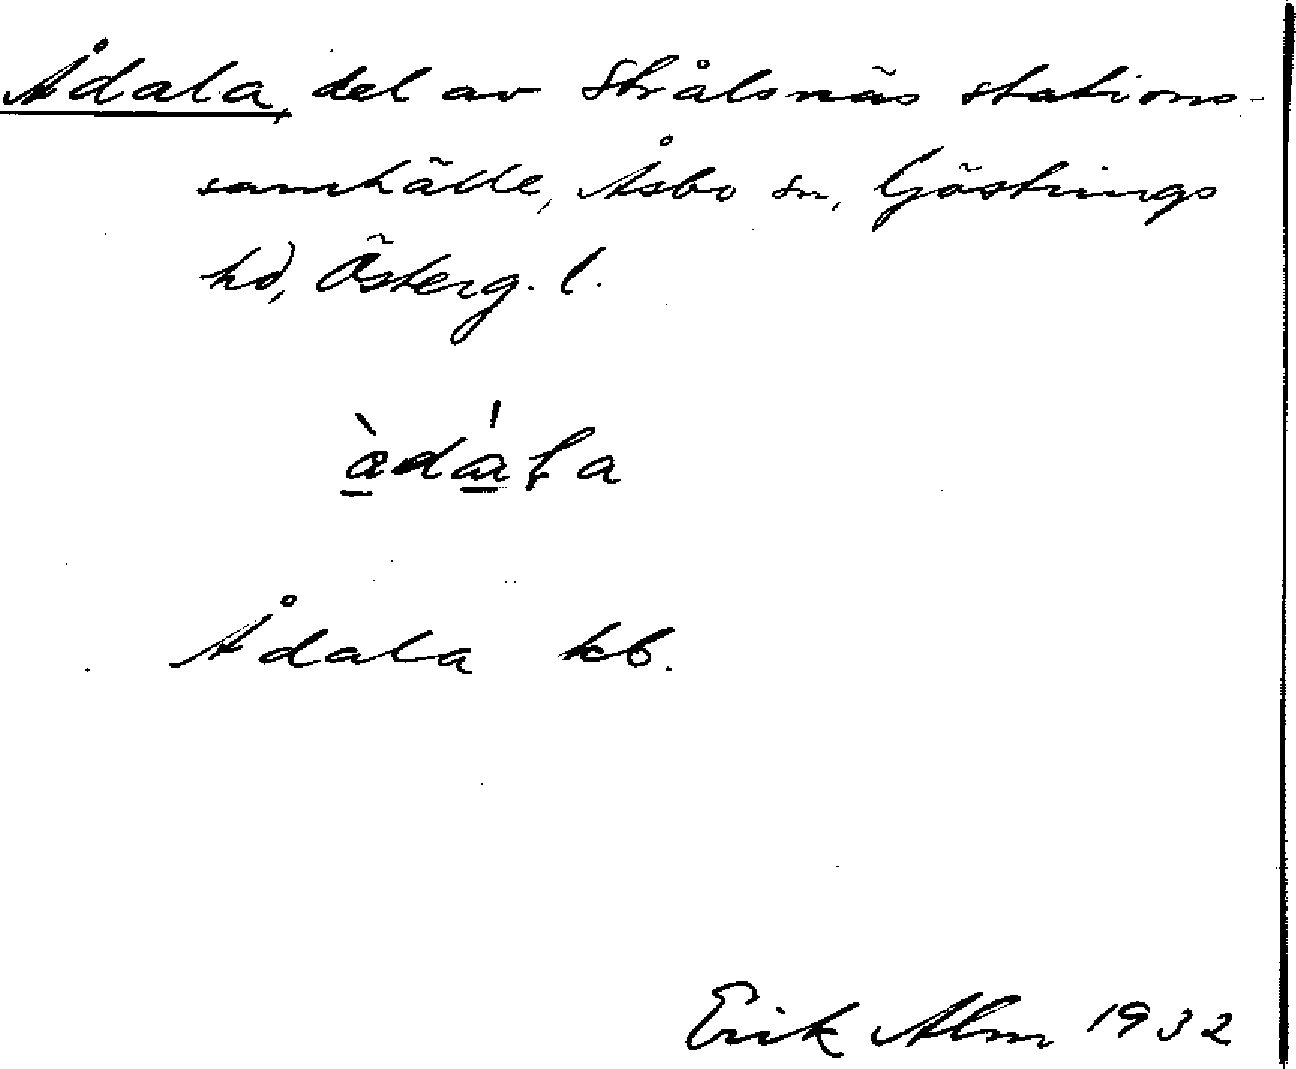 Ådala, del av Strålsnäs stations-
samhälle, Åsbo sn, Göstrings
hd, Österg. l.
àdála
Ådala kb.
Erik Alm 1932